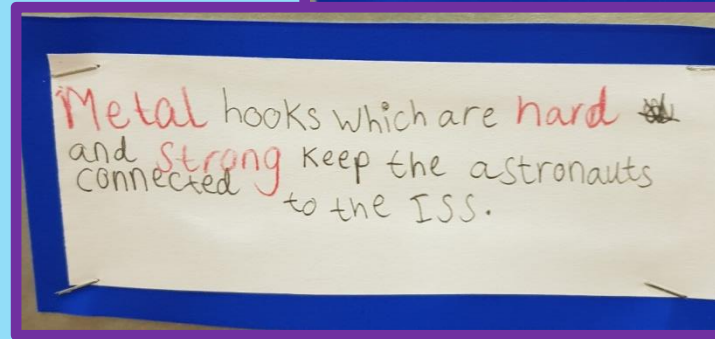 Metal hooks which are hard
and strong keep the astronauts
connected to the ISS.